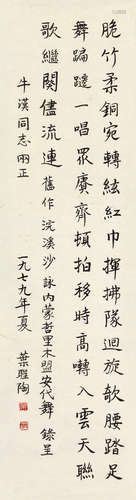 脆竹柔銅宛轉絃紅巾揮拂隊迴旋欹腰踏足
舞蹁躚一唱眾賡齊頓拍移時高囀入雲天聯
歌繼闋儘流連 舊作浣溪沙詠內蒙哲里木盟安代舞 錄呈
牛漢同志兩正 一九七九年夏 葉聖陶